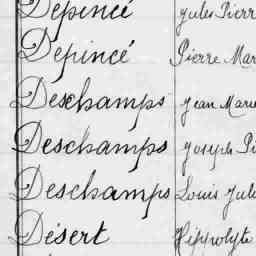 Depincé Jules Pierr
Depincé Pierre Mar
Deschamps Jean Marie
Deschamps Joseph Pi
Deschamps Louis Jule
Désert Hippolyte